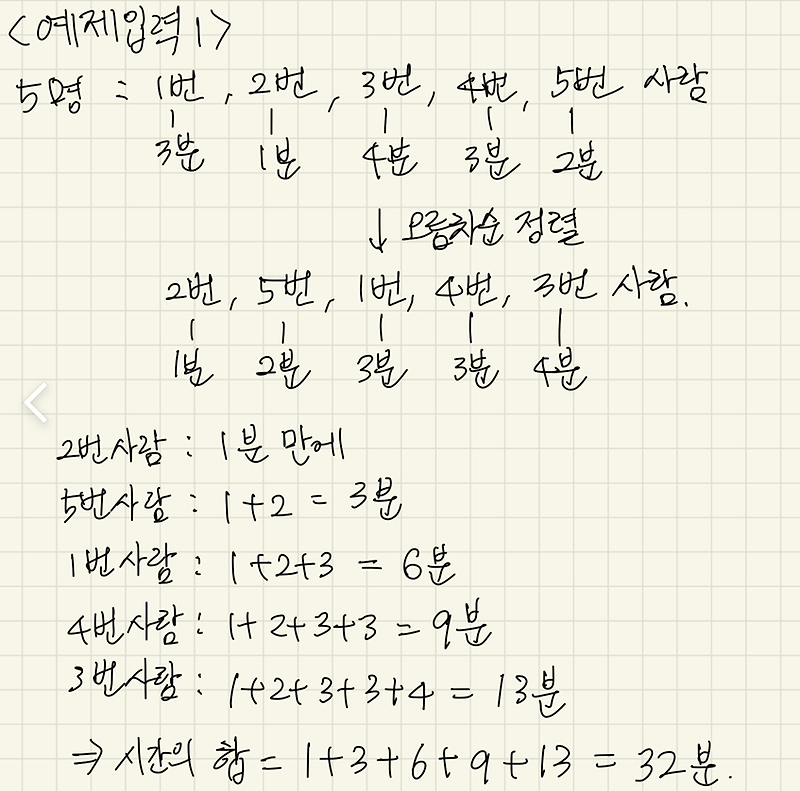 <예제입력1>
5명 : 1번, 2번, 3번, 4번, 5번 사람
3분 1분 4분 3분 2분
↓ 오름차순 정렬
2번, 5번, 1번, 4번, 3번 사람.
1분 2분 3분 3분 4분
2번사람 : 1분 만에
5번사람 : 1+2 = 3분
1번사람 : 1+2+3 = 6분
4번사람 : 1+2+3+3 = 9분
3번사람 : 1+2+3+3+4 = 13분
⇒ 시간의 합 = 1+3+6+9+13 = 32분.